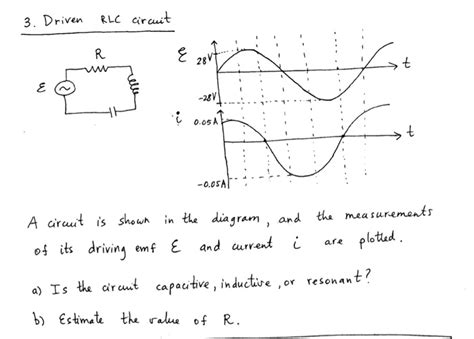 3. Driven RLC circuit
R
ε
ε
28V
-28V
t
i
0.05A
-0.05A
t
A circuit is shown in the diagram, and the measurements
of its driving emf ε and current i are plotted.
a) Is the circuit capacitive, inductive, or resonant?
b) Estimate the value of R.